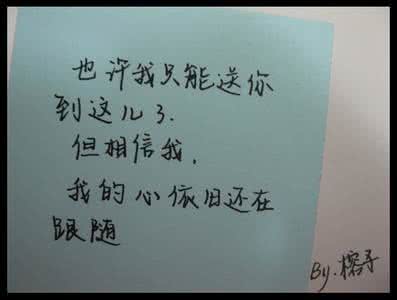 也许我只能送你
到这儿了.
但相信我,
我的心依旧还在
跟随
By.榕寻